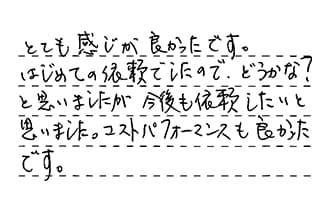 とても感じが良かったです。
はじめての依頼でしたので、どうかな?
と思いましたが今後も依頼したいと
思いました。コストパフォーマンスも良かった
です。